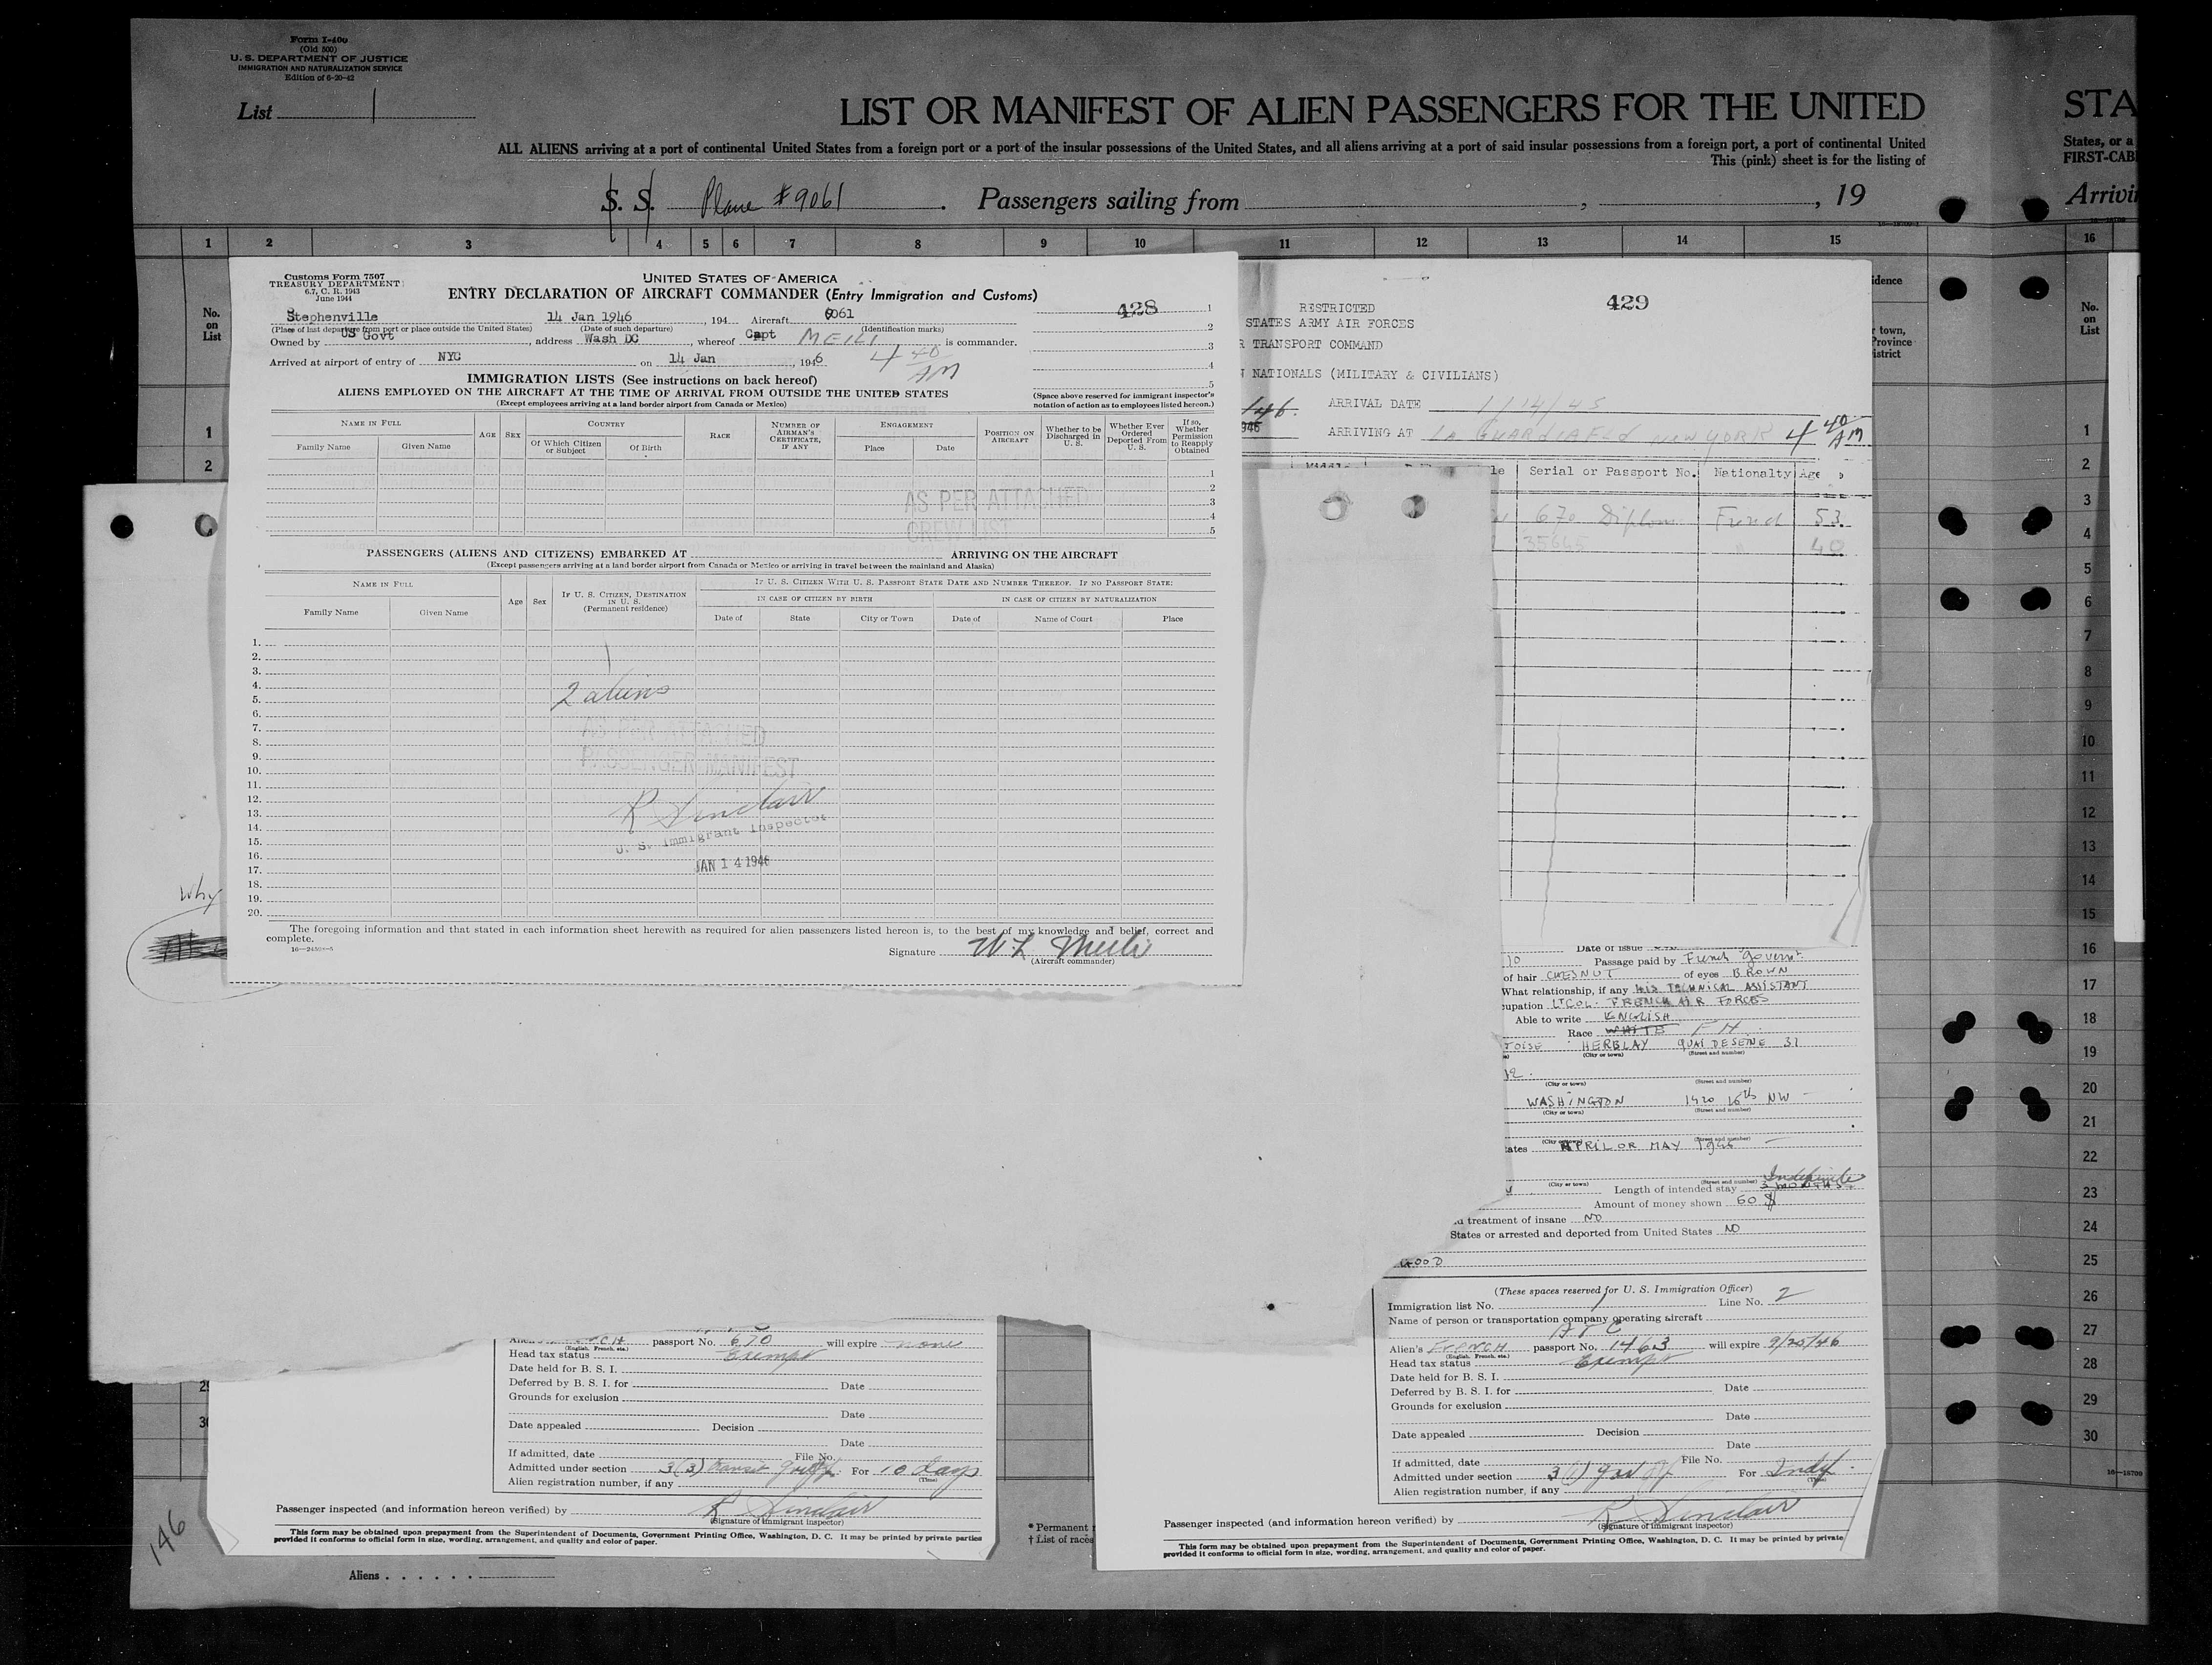 Form I-400
(Old 500)
U. S. DEPARTMENT OF JUSTICE
IMMIGRATION AND NATURALIZATION SERVICE
Edition of 6-20-42
List 1
LIST OR MANIFEST OF ALIEN PASSENGERS FOR THE UNITED
STA
ALL ALIENS arriving at a port of continental United States from a foreign port or a port of the insular possessions of the United States, and all aliens arriving at a port of said insular possessions from a foreign port, a port of continental United
States, or a
This (pink) sheet is for the listing of
FIRST-CAB
S. S. Plane #9061 . Passengers sailing from , , 19
Arrivin
1 2 3 4 5 6 7 8 9 10 11 12 13 14 15 16
No. on List
1
2
Customs Form 7507
TREASURY DEPARTMENT
6.7, C. R. 1943
June 1944
UNITED STATES OF AMERICA
ENTRY DECLARATION OF AIRCRAFT COMMANDER (Entry Immigration and Customs)
428
Stephenville 14 Jan 1946 , 194 Aircraft 9061
(Place of last departure from port or place outside the United States) (Date of such departure) (Identification marks)
Owned by US Govt , address Wash DC , whereof Capt MEILI is commander.
Arrived at airport of entry of NYC on 14 Jan , 1946 4 40 AM
IMMIGRATION LISTS (See instructions on back hereof)
ALIENS EMPLOYED ON THE AIRCRAFT AT THE TIME OF ARRIVAL FROM OUTSIDE THE UNITED STATES
(Except employees arriving at a land border airport from Canada or Mexico)
1
2
3
4
5
(Space above reserved for immigrant inspector's
notation of action as to employees listed hereon.)
NAME IN FULL
Family Name Given Name
AGE SEX
COUNTRY
Of Which Citizen or Subject Of Birth
RACE
NUMBER OF AIRMAN'S CERTIFICATE, IF ANY
ENGAGEMENT
Place Date
POSITION ON AIRCRAFT
Whether to be Discharged in U. S.
Whether Ever Ordered Deported From U. S.
If so, Whether Permission to Reapply Obtained
1
2
3
4
5
AS PER ATTACHED
CREW LIST
PASSENGERS (ALIENS AND CITIZENS) EMBARKED AT ARRIVING ON THE AIRCRAFT
(Except passengers arriving at a land border airport from Canada or Mexico or arriving in travel between the mainland and Alaska)
NAME IN FULL
Family Name Given Name
Age Sex
IF U. S. CITIZEN, DESTINATION IN U. S.
(Permanent residence)
IF U. S. CITIZEN WITH U. S. PASSPORT STATE DATE AND NUMBER THEREOF. IF NO PASSPORT STATE:
IN CASE OF CITIZEN BY BIRTH IN CASE OF CITIZEN BY NATURALIZATION
Date of State City or Town Date of Name of Court Place
1.
2.
3.
4.
5.
6.
7.
8.
9.
10.
11.
12.
13.
14.
15.
16.
17.
18.
19.
20.
2 aliens
AS PER ATTACHED
PASSENGER MANIFEST
R Sinclair
U. S. Immigrant Inspector
JAN 14 1946
The foregoing information and that stated in each information sheet herewith as required for alien passengers listed hereon is, to the best of my knowledge and belief, correct and
complete.
16—24598-5
Signature W L Meili
(Aircraft commander)
Why
RESTRICTED
429
STATES ARMY AIR FORCES
R TRANSPORT COMMAND
N NATIONALS (MILITARY & CIVILIANS)
/46. ARRIVAL DATE 1/14/45
946 ARRIVING AT LA GUARDIA Fld NEW YORK 4 40 AM
le Serial or Passport No. Nationalty Age
670 Diplom French 53
35645 " 40
idence
r town,
Province
istrict
Date of issue
10 Passage paid by French "Govern"
of hair CHESNUT of eyes BROWN
What relationship, if any HIS TECHNICAL ASSISTANT
cupation LT COL. FRENCH AIR FORCES
Able to write ENGLISH
Race WHITE FH
TOISE HERBLAY QUAI DE SEINE 31
(City or town) (Street and number)
12.
(City or town) (Street and number)
WASHINGTON 1420 16th NW
(City or town) (Street and number)
(City or town) (Street and number)
tates APRIL OR MAY 1946
(City or town) (Street and number) Indefinite
Length of intended stay 3 MONTHS
Amount of money shown 60 $
nd treatment of insane NO
States or arrested and deported from United States NO
GOOD
(These spaces reserved for U. S. Immigration Officer)
Immigration list No. 1 Line No. 2
Name of person or transportation company operating aircraft
ATC
Alien's FRENCH passport No. 1463 will expire 9/20/46
(English, French, etc.)
Head tax status Exempt
Date held for B. S. I.
Deferred by B. S. I. for Date
Grounds for exclusion
Date
Date appealed Decision
Date
If admitted, date File No.
Admitted under section 3(1) For Indf
(Time)
Alien registration number, if any
Passenger inspected (and information hereon verified) by R Sinclair
(Signature of immigrant inspector)
This form may be obtained upon prepayment from the Superintendent of Documents, Government Printing Office, Washington, D. C. It may be printed by private
provided it conforms to official form in size, wording, arrangement, and quality and color of paper.
passport No. 670 will expire none
(English, French, etc.)
Head tax status Exempt
Date held for B. S. I.
Deferred by B. S. I. for Date
Grounds for exclusion
Date
Date appealed Decision
Date
If admitted, date File No.
Admitted under section 3(3) transit For 10 days
(Time)
Alien registration number, if any
Passenger inspected (and information hereon verified) by R Sinclair
(Signature of immigrant inspector)
This form may be obtained upon prepayment from the Superintendent of Documents, Government Printing Office, Washington, D. C. It may be printed by private parties
provided it conforms to official form in size, wording, arrangement, and quality and color of paper.
* Permanent
† List of races
146
Aliens . . . . . .
No. on List
1
2
3
4
5
6
7
8
9
10
11
12
13
14
15
16
17
18
19
20
21
22
23
24
25
26
27
28
29
30
16—18709